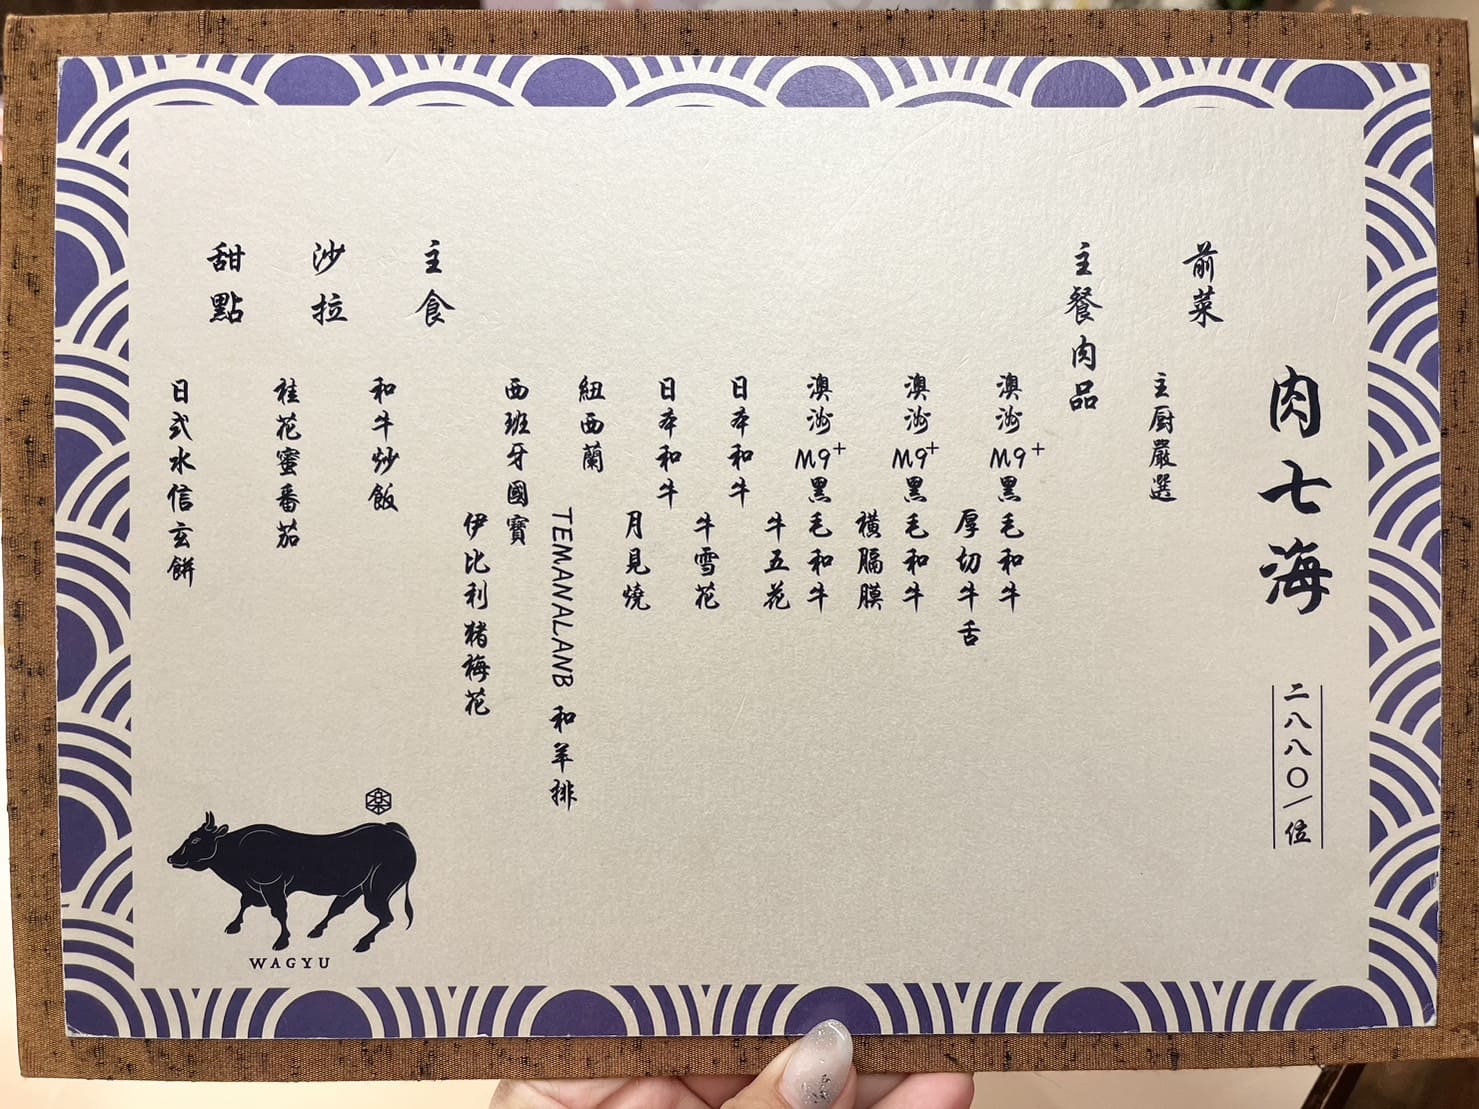 肉七海
二八八〇/位
前菜
主厨嚴選
主餐肉品
澳洲M9+黑毛和牛
厚切牛舌
澳洲M9+黑毛和牛
橫膈膜
澳洲M9+黑毛和牛
牛五花
日本和牛
牛雪花
日本和牛
月見燒
紐西蘭
TEMANALANB 和羊排
西班牙國寶
伊比利豬梅花
主食
和牛炒飯
沙拉
桂花蜜番茄
甜點
日式水信玄餅
楽
WAGYU